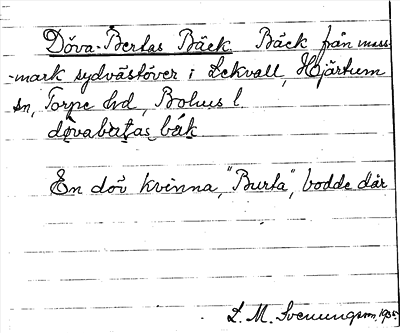 Döva-Bertas Bäck. Bäck från moss-
-mark sydvästöver i Lekvall, Hjärtum
sn, Torpe hd, Bohus l.
dövabutas bäk
En döv kvinna, "Burta", bodde där
L. M. Svenungsson, 1935.